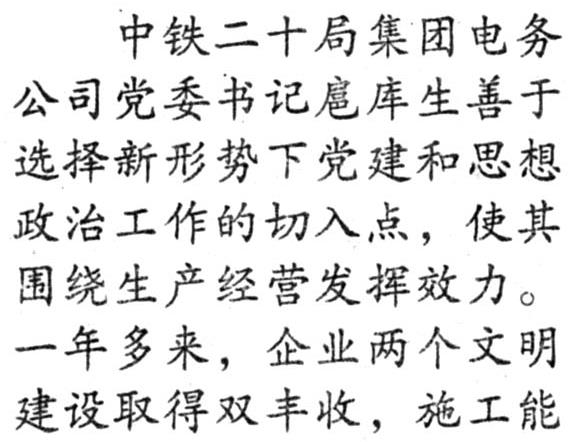 中铁二十局集团电务
公司党委书记扈库生善于
选择新形势下党建和思想
政治工作的切入点，使其
围绕生产经营发挥效力。
一年多来，企业两个文明
建设取得双丰收，施工能